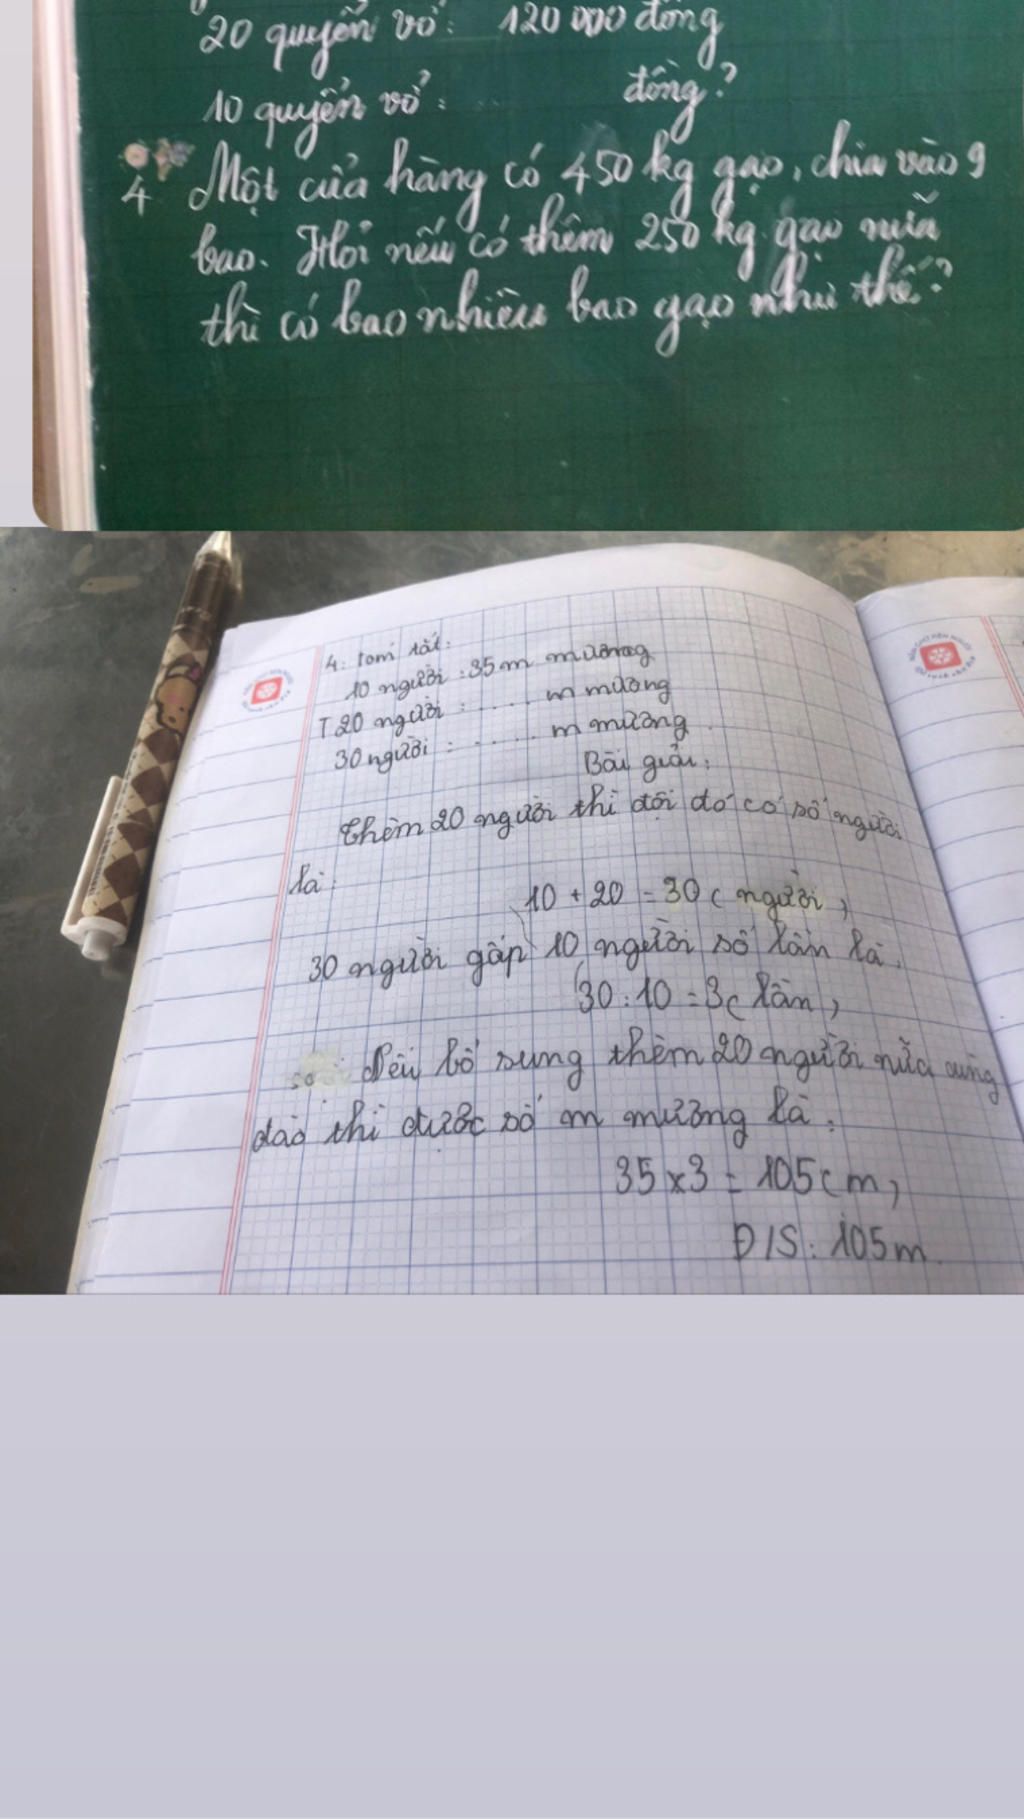 20 quyển vở: 120 000 đồng
10 quyển vở: ... đồng?
4 Một cửa hàng có 450 kg gạo, chia vào 9
bao. Hỏi nếu có thêm 250 kg gạo nữa
thì có bao nhiêu bao gạo như thế?
4: tóm tắt:
10 người : 35m mương
T 20 người : ..... m mương
30 người : ..... m mương
Bài giải:
Thêm 20 người thì đội đó có số người
là:
10 + 20 = 30 ( người )
30 người gấp 10 người số lần là:
30 : 10 = 3 ( lần )
Nếu bổ sung thêm 20 người nữa cùng
đào thì được số m mương là:
35 x 3 = 105 ( m )
Đ/S: 105m